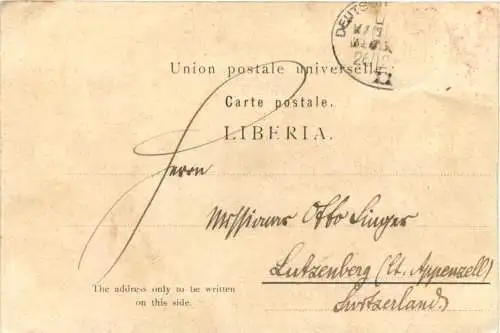 DEUTSCH
Union postale universelle.
Carte postale.
LIBERIA.
Herrn
Missionar Otto Singer
Lutzenberg (Ct. Appenzell)
Switzerland
The address only to be written
on this side.